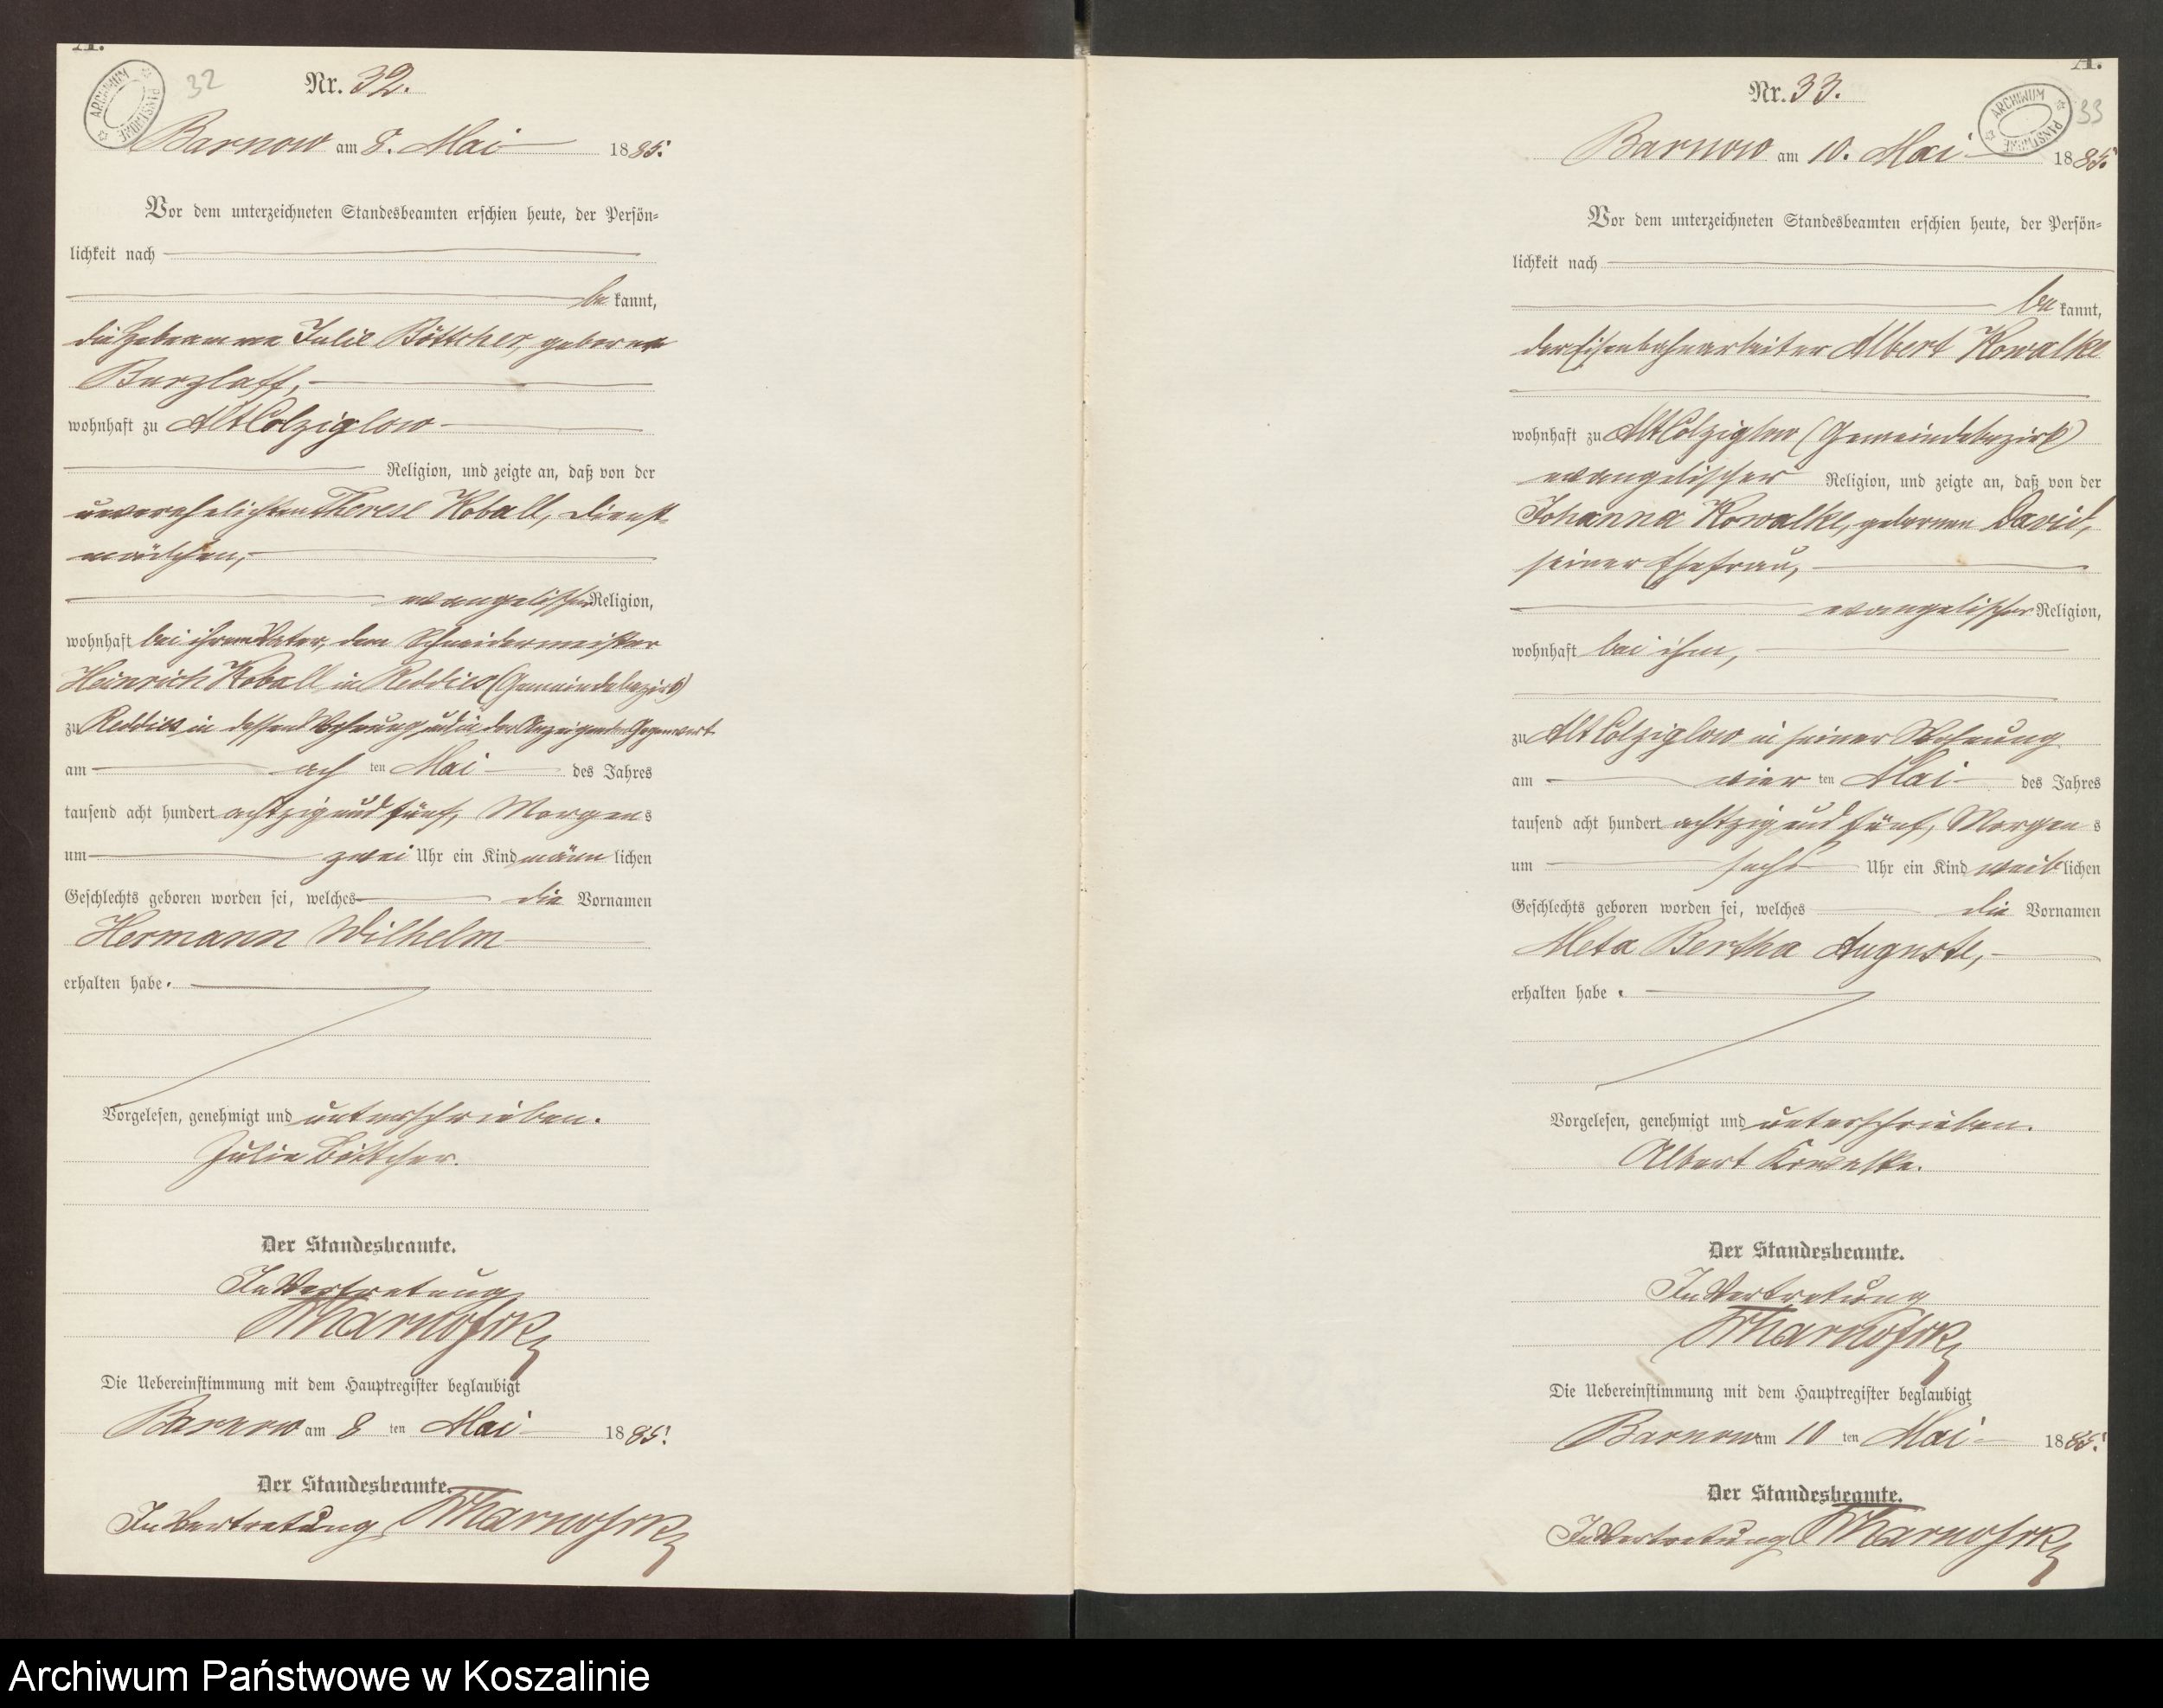 A.
ARCHIWUM PAŃSTWOWE
32
Nr. 32.
Barnow am 8. Mai 1885.
Vor dem unterzeichneten Standesbeamten erschien heute, der Persön-
lichkeit nach
be kannt,
die Hebamme Julie Böttcher, geborene
Burzlaff,
wohnhaft zu Alt Colziglow
Religion, und zeigte an, daß von der
unverehelichten Therese Koball, Dienst-
mädchen,
evangelischer Religion,
wohnhaft bei ihrem Vater, dem Schneidermeister
Heinrich Koball in Reddies (Gemeindebezirk)
zu Reddies in dessen Wohnung und in der Anzeigenden Gegenwart
am ach ten Mai des Jahres
tausend acht hundert achtzig und fünf, Morgens
um zwei Uhr ein Kind männ lichen
Geschlechts geboren worden sei, welches die Vornamen
Hermann Wilhelm
erhalten habe.
Vorgelesen, genehmigt und unterschrieben.
Julie Böttcher.
Der Standesbeamte.
In Vertretung
Die Uebereinstimmung mit dem Hauptregister beglaubigt
Barnow am 8 ten Mai 1885.
Der Standesbeamte.
In Vertretung
A.
ARCHIWUM PAŃSTWOWE
33
Nr. 33.
Barnow am 10. Mai 1885.
Vor dem unterzeichneten Standesbeamten erschien heute, der Persön-
lichkeit nach
be kannt,
der Eisenbahnarbeiter Albert Kowalke
wohnhaft zu Alt Colziglow (Gemeindebezirk)
evangelischer Religion, und zeigte an, daß von der
Johanna Kowalke, geborenen David,
seiner Ehefrau,
evangelischer Religion,
wohnhaft bei ihm,
zu Alt Colziglow in seiner Wohnung
am vier ten Mai des Jahres
tausend acht hundert achtzig und fünf, Morgens
um sechs Uhr ein Kind weib lichen
Geschlechts geboren worden sei, welches die Vornamen
Meta Bertha Auguste,
erhalten habe.
Vorgelesen, genehmigt und unterschrieben.
Albert Kowalke.
Der Standesbeamte.
In Vertretung
Die Uebereinstimmung mit dem Hauptregister beglaubigt
Barnow am 10 ten Mai 1885.
Der Standesbeamte.
In Vertretung
Archiwum Państwowe w Koszalinie